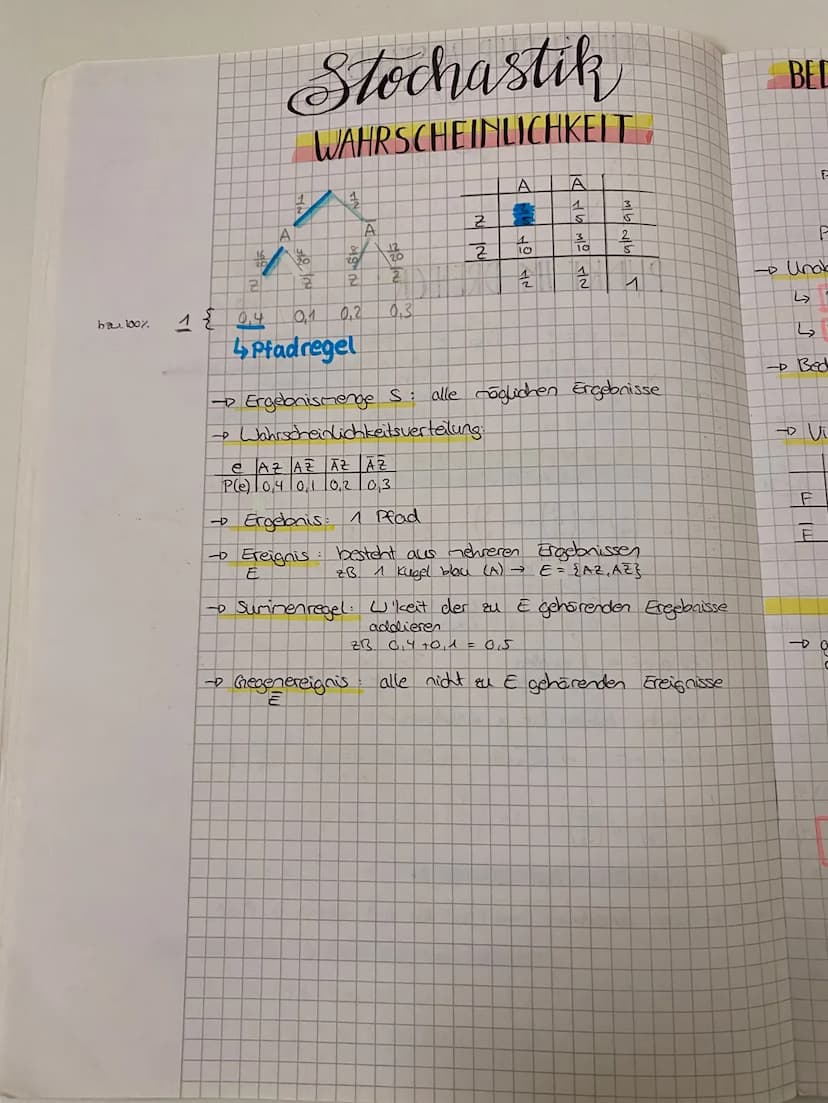 Stochastik
WAHRSCHEINLICHKEIT
BED
1/2 1/2
A Ā
A Ā
16/20 4/20 8/20 12/20
Z Z̄ Z Z̄
Z 1/5 3/5
Z̄ 1/10 3/10 2/5
1/2 1/2 1
bzw. 100% 1 { 0,4 0,1 0,2 0,3
↳ Pfadregel
→ Ergebnismenge S: alle möglichen Ergebnisse
→ Wahrscheinlichkeitsverteilung:
e | AZ | AZ̄ | ĀZ | ĀZ̄
P(e) | 0,4 | 0,1 | 0,2 | 0,3
→ Ergebnis: 1 Pfad
→ Ereignis: besteht aus mehreren Ergebnissen
E zB 1 Kugel blau (A) → E = {AZ, AZ̄}
→ Summenregel: W'keit der zu E gehörenden Ergebnisse
addieren
zB 0,4 + 0,1 = 0,5
→ Gegenereignis: alle nicht zu E gehörenden Ereignisse
Ē
→ Una
↳
↳
→ Bed
→ Vi
F
Ē
→ g